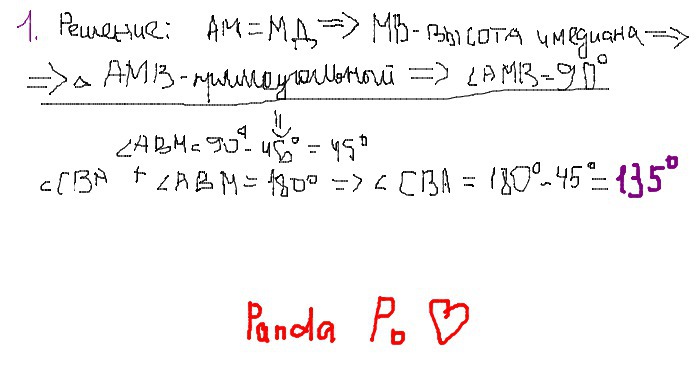 1. Решение: AM = MД => MB - высота и медиана =>
=> △ AMB - прямоугольный => ∠AMB = 90°
=>
∠ABM = 90° - 45° = 45°
∠CBA + ∠ABM = 180° => ∠CBA = 180° - 45° = 135°
Panda Po ♡